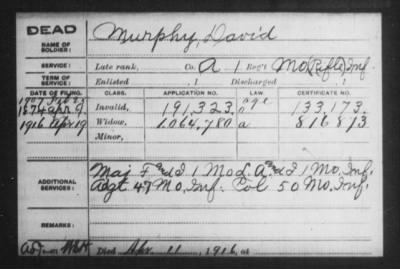 DEAD
NAME OF SOLDIER: Murphy, David
SERVICE: Late rank, Co. A. 1 Reg't Mo (Rifle) Inf.
TERM OF SERVICE: Enlisted , 1 Discharged , 1
DATE OF FILING. CLASS. APPLICATION NO. LAW. CERTIFICATE NO.
1874 Apr 9 Invalid, 191,323. age 133,173.
1916 Apr 19 Widow, 1,064,780 a 816,873
Minor,
ADDITIONAL SERVICES: Maj F and I 1 Mo L. A. I 1 Mo. Inf.
Adgt 47 Mo. Inf. Col 50 Mo. Inf.
REMARKS:
Died Apr. 11, 1916, at